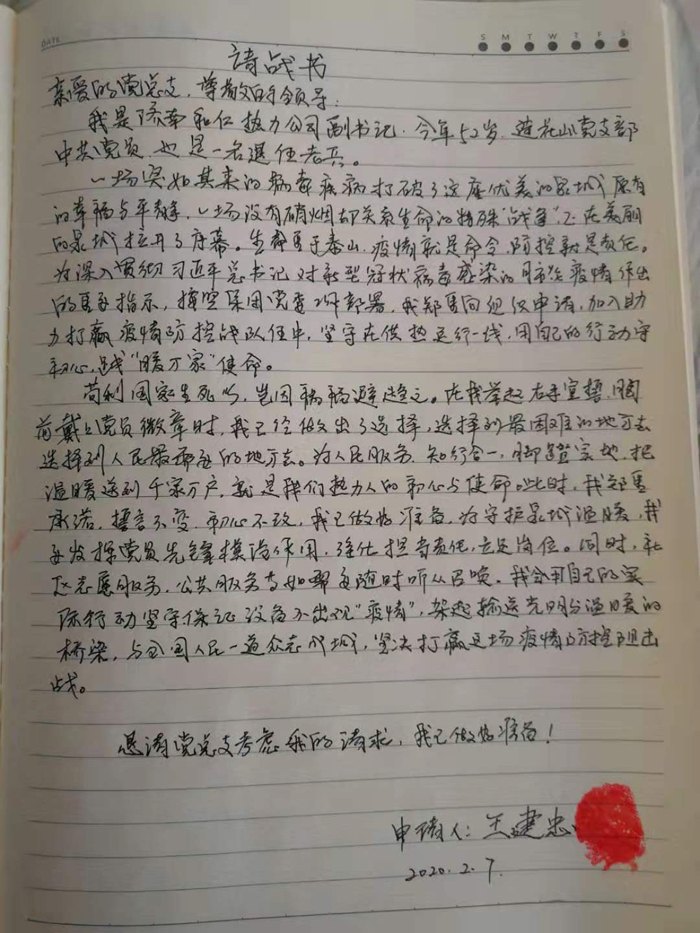 DATE
S M T W T F S
请战书
亲爱的党总支，尊敬的领导：
我是济南和仁热力公司副书记，今年52岁，莲花山党支部
中共党员，也是一名退伍老兵。
一场突如其来的病毒疾病打破了这座优美的泉城原有
的幸福与平静，一场没有硝烟却关系生命的特殊“战争”正在美丽
的泉城拉开了序幕。生命重于泰山，疫情就是命令，防控就是责任。
为深入贯彻习近平总书记对新型冠状病毒感染的肺炎疫情作出
的重要指示，按照集团党委工作部署，我郑重向组织申请，加入助
力打赢疫情防控战队伍中，坚守在供热运行一线，用自己的行动守
初心，践“暖万家”使命。
苟利国家生死以，岂因祸福避趋之。在我举起右手宣誓，胸
前戴上党员徽章时，我已经做出了选择，选择到最困难的地方去
选择到人民最需要的地方去。为人民服务，知行合一，脚踏实地，把
温暖送到千家万户，就是我们热力人的初心与使命。此时，我郑重
承诺，誓言不变，初心不改，我已做好准备，为守护泉城温暖，我
要发挥党员先锋模范作用，强化担当责任，立足岗位。同时，社
区志愿服务，公共服务等如需要随时听从召唤。我会用自己的实
际行动坚守保证设备不出现“疫情”，架起输送光明与温暖的
桥梁，与全国人民一道众志成城，坚决打赢这场疫情防控阻击
战。
恳请党总支考虑我的请求，我已做好准备！
申请人：王建忠
2020.2.7.